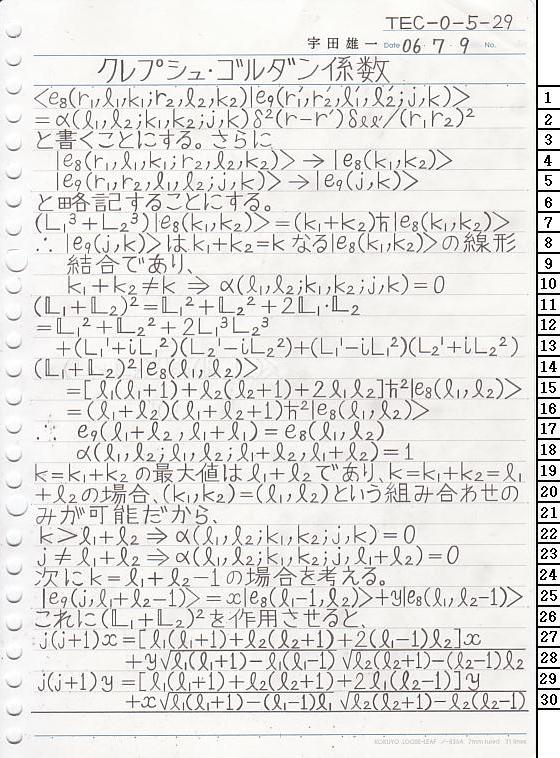 TEC-0-5-29
宇田雄一 Date 06 7 9 No.
クレプシュ・ゴルダン係数
<e₈(r₁,ℓ₁,k₁;r₂,ℓ₂,k₂)|e₉(r₁′,r₂′,ℓ₁′,ℓ₂′;j,k)> 1
=α(ℓ₁,ℓ₂;k₁,k₂;j,k)δ²(r−r′)δℓℓ′/(r₁r₂)² 2
と書くことにする。さらに 3
|e₈(r₁,ℓ₁,k₁;r₂,ℓ₂,k₂)> → |e₈(k₁,k₂)> 4
|e₉(r₁,r₂,ℓ₁,ℓ₂;j,k)> → |e₉(j,k)> 5
と略記することにする。 6
(L₁³+L₂³)|e₈(k₁,k₂)>=(k₁+k₂)ħ|e₈(k₁,k₂)> 7
∴ |e₉(j,k)>はk₁+k₂=kなる|e₈(k₁,k₂)>の線形 8
結合であり、 9
k₁+k₂≠k ⇒ α(ℓ₁,ℓ₂;k₁,k₂;j,k)=0 10
(𝕃₁+𝕃₂)²=𝕃₁²+𝕃₂²+2𝕃₁·𝕃₂ 11
=𝕃₁²+𝕃₂²+2L₁³L₂³ 12
+(L₁¹+iL₁²)(L₂¹−iL₂²)+(L₁¹−iL₁²)(L₂¹+iL₂²) 13
(𝕃₁+𝕃₂)²|e₈(ℓ₁,ℓ₂)> 14
=[ℓ₁(ℓ₁+1)+ℓ₂(ℓ₂+1)+2ℓ₁ℓ₂]ħ²|e₈(ℓ₁,ℓ₂)> 15
=(ℓ₁+ℓ₂)(ℓ₁+ℓ₂+1)ħ²|e₈(ℓ₁,ℓ₂)> 16
∴ e₉(ℓ₁+ℓ₂,ℓ₁+ℓ₁)=e₈(ℓ₁,ℓ₂) 17
α(ℓ₁,ℓ₂;ℓ₁,ℓ₂;ℓ₁+ℓ₂,ℓ₁+ℓ₂)=1 18
k=k₁+k₂の最大値はℓ₁+ℓ₂であり、k=k₁+k₂=ℓ₁ 19
+ℓ₂の場合、(k₁,k₂)=(ℓ₁,ℓ₂)という組み合わせの 20
みが可能だから、 21
k>ℓ₁+ℓ₂ ⇒ α(ℓ₁,ℓ₂;k₁,k₂;j,k)=0 22
j≠ℓ₁+ℓ₂ ⇒ α(ℓ₁,ℓ₂;k₁,k₂;j,ℓ₁+ℓ₂)=0 23
次にk=ℓ₁+ℓ₂−1の場合を考える。 24
|e₉(j,ℓ₁+ℓ₂−1)>=x|e₈(ℓ₁−1,ℓ₂)>+y|e₈(ℓ₁,ℓ₂−1)> 25
これに(𝕃₁+𝕃₂)²を作用させると、 26
j(j+1)x=[ℓ₁(ℓ₁+1)+ℓ₂(ℓ₂+1)+2(ℓ₁−1)ℓ₂]x 27
+y√ℓ₁(ℓ₁+1)−ℓ₁(ℓ₁−1) √ℓ₂(ℓ₂+1)−(ℓ₂−1)ℓ₂ 28
j(j+1)y=[ℓ₁(ℓ₁+1)+ℓ₂(ℓ₂+1)+2ℓ₁(ℓ₂−1)]y 29
+x√ℓ₁(ℓ₁+1)−(ℓ₁−1)ℓ₁ √ℓ₂(ℓ₂+1)−ℓ₂(ℓ₂−1) 30
KOKUYO LOOSE-LEAF ノ-836A 7mm ruled 31 lines